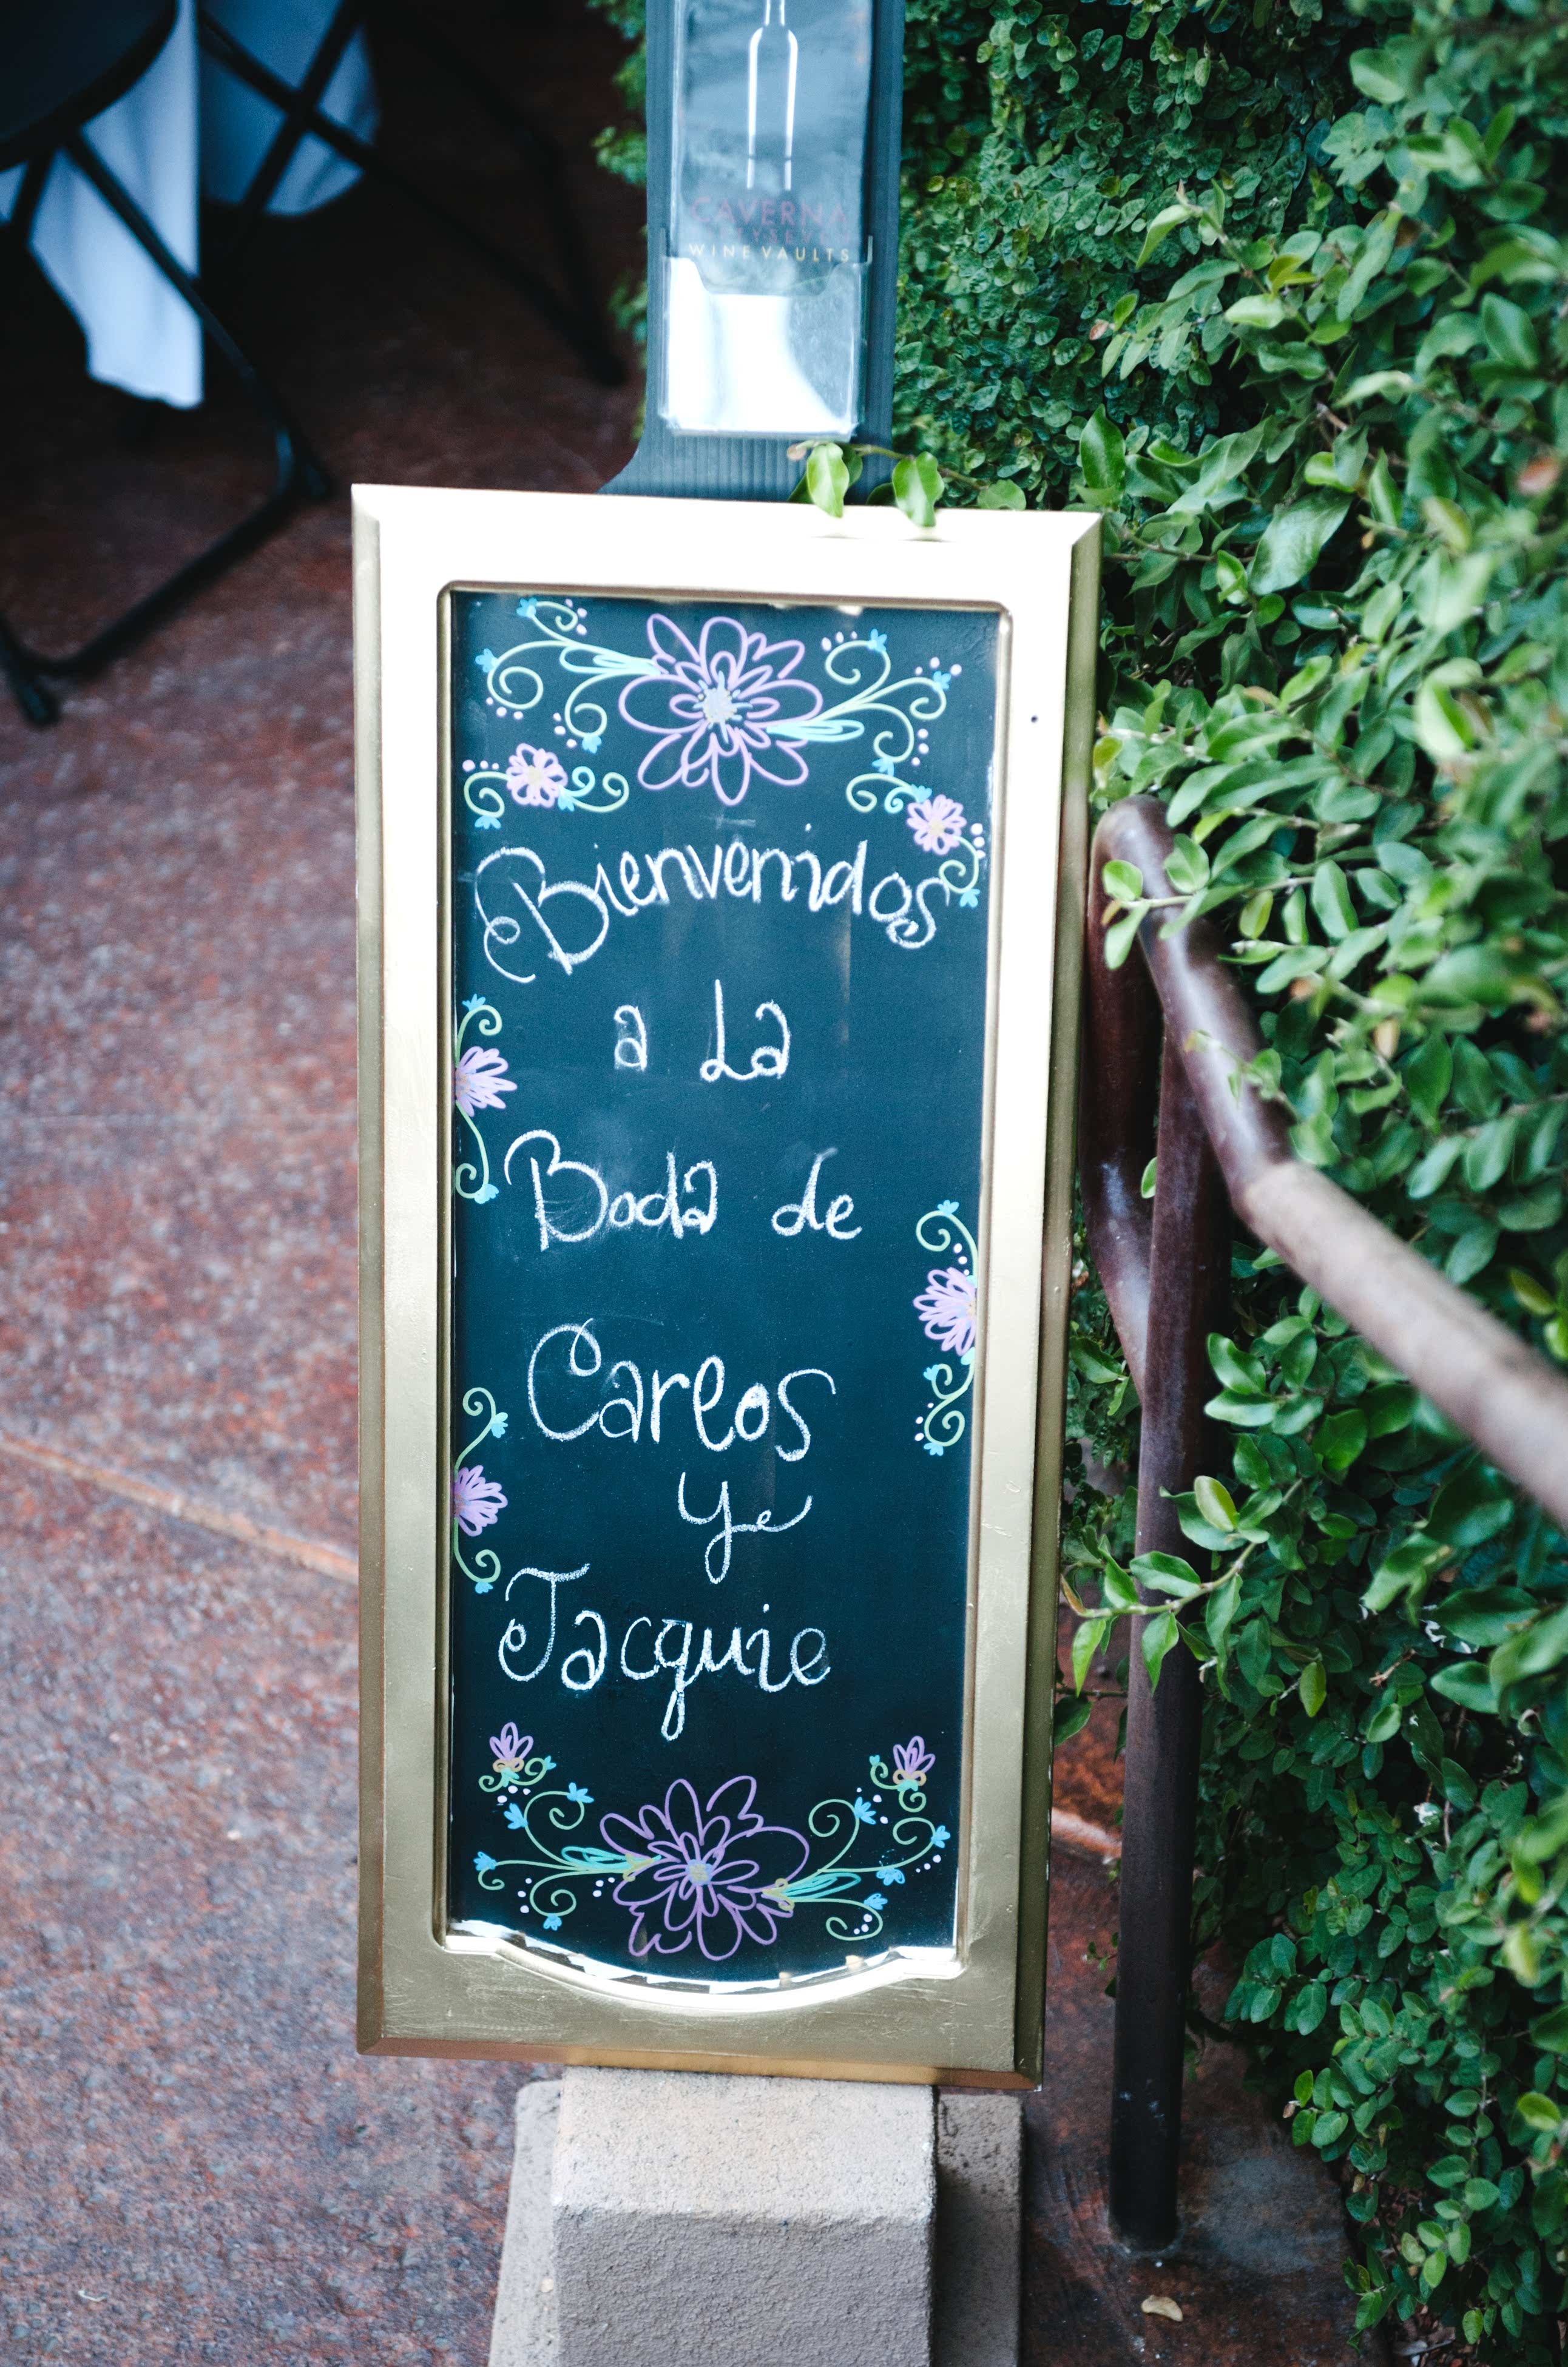 CAVERNA
WINE VAULTS
Bienvenidos
a La
Boda de
Carlos
y
Jacquie